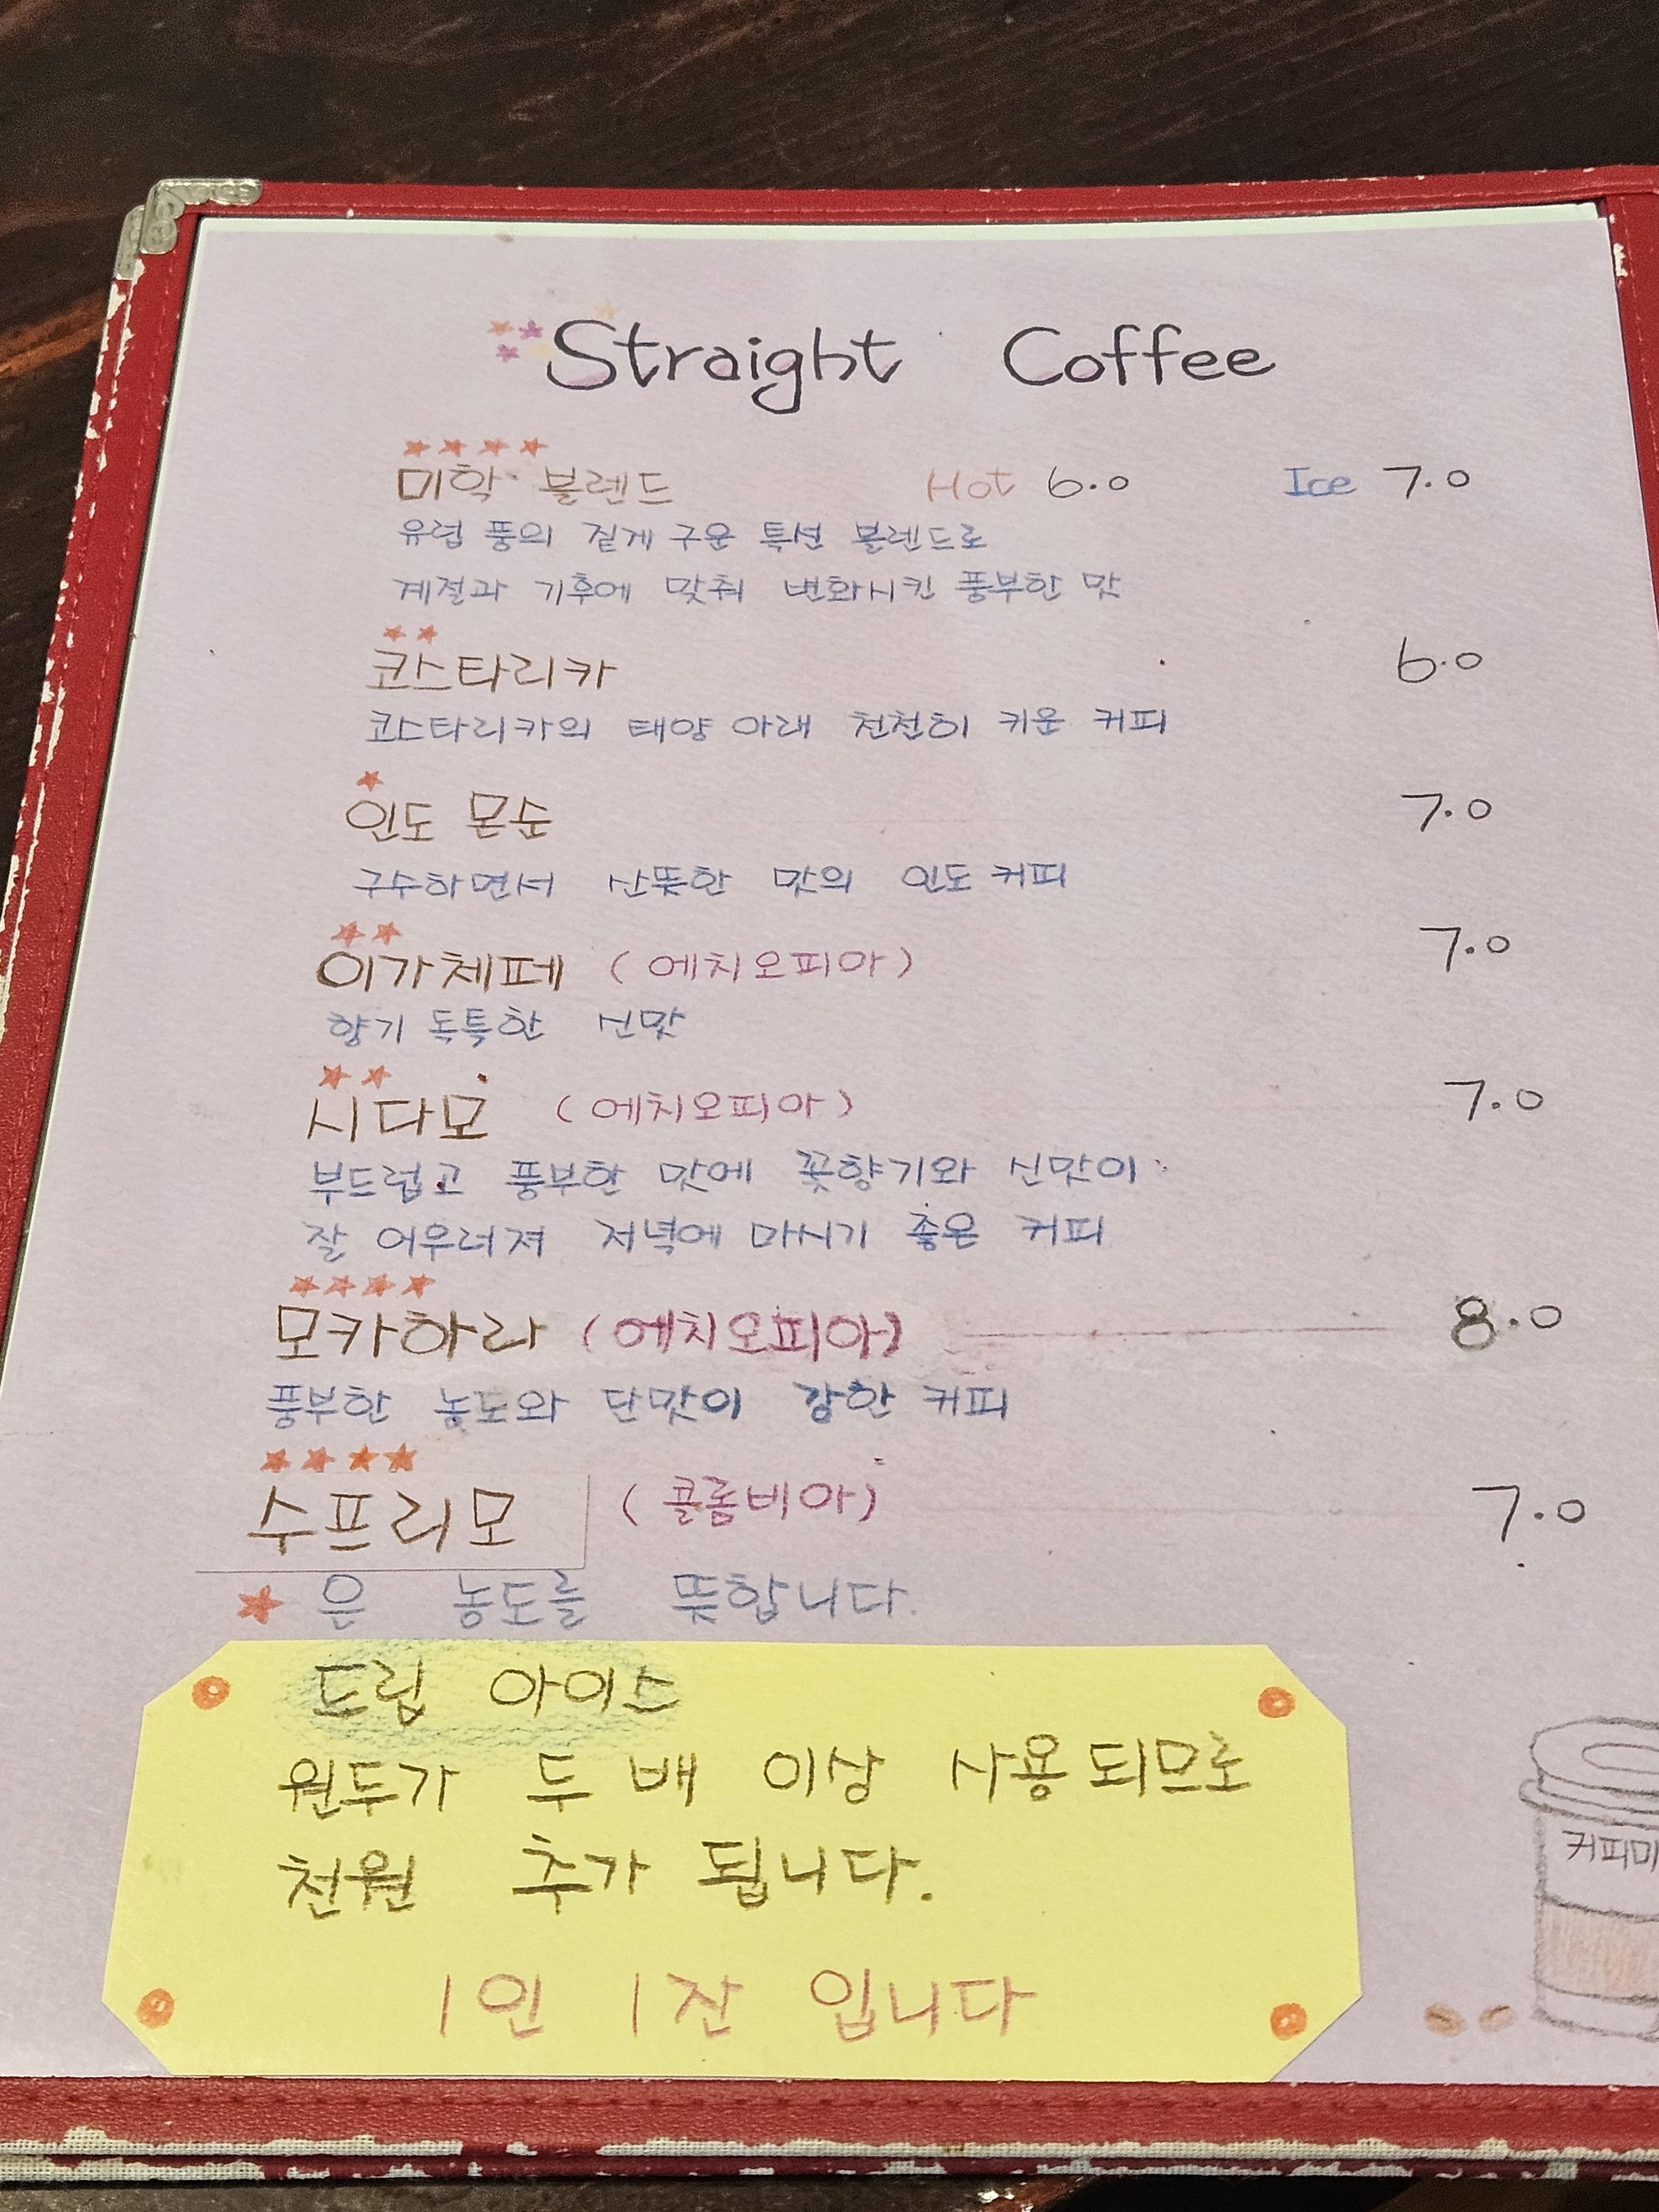 Straight Coffee
★★★★
미학 블렌드 Hot 6.0 Ice 7.0
유럽 풍의 짙게 구운 특선 블렌드로
계절과 기후에 맞춰 변화시킨 풍부한 맛
★★
코스타리카 6.0
코스타리카의 태양 아래 천천히 키운 커피
★
인도 몬순 7.0
구수하면서 산뜻한 맛의 인도 커피
★★
이가체페 (에치오피아) 7.0
향기 독특한 신맛
★★
시다모 (에치오피아) 7.0
부드럽고 풍부한 맛에 꽃향기와 신맛이
잘 어우러져 저녁에 마시기 좋은 커피
★★★★
모카하라 (에치오피아) 8.0
풍부한 농도와 단맛이 강한 커피
★★★★
수프리모 (콜롬비아) 7.0
★ 은 농도를 뜻합니다.
드립 아이스
원두가 두 배 이상 사용되므로
천원 추가 됩니다.
1인 1잔 입니다
커피미